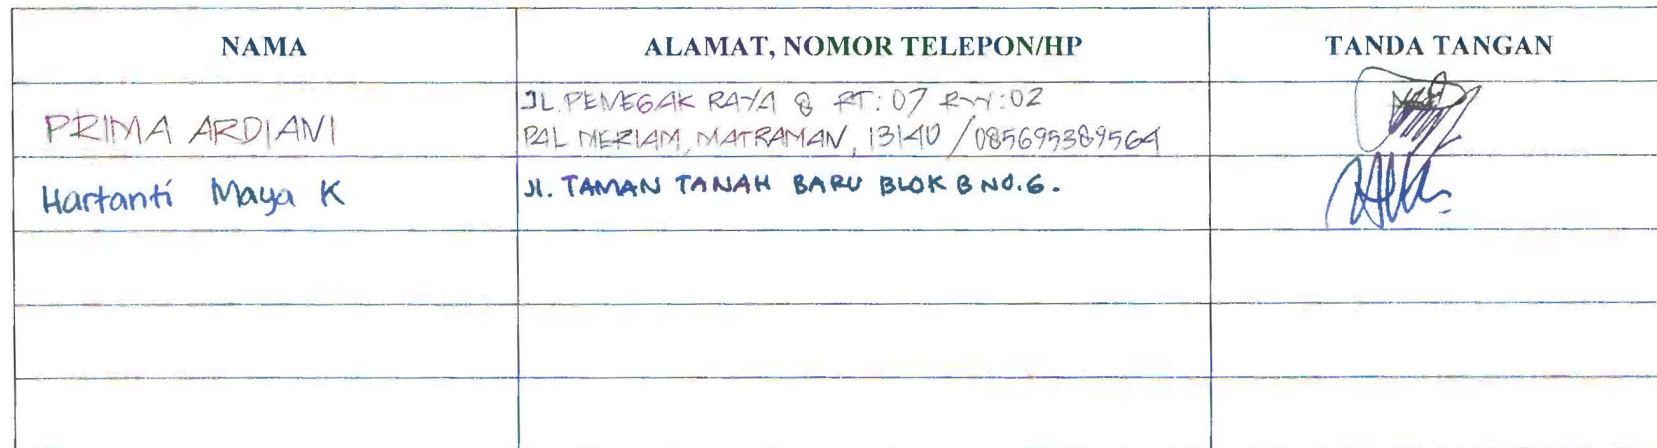 NAMA
ALAMAT, NOMOR TELEPON/HP
TANDA TANGAN
PRIMA ARDIANI
JL. PENEGAK RAYA 8 RT:07 RW:02
PAL MERIAM, MATRAMAN, 13140 / 085695389564
Hartanti Maya K
Jl. TAMAN TANAH BARU BLOK B NO.6.